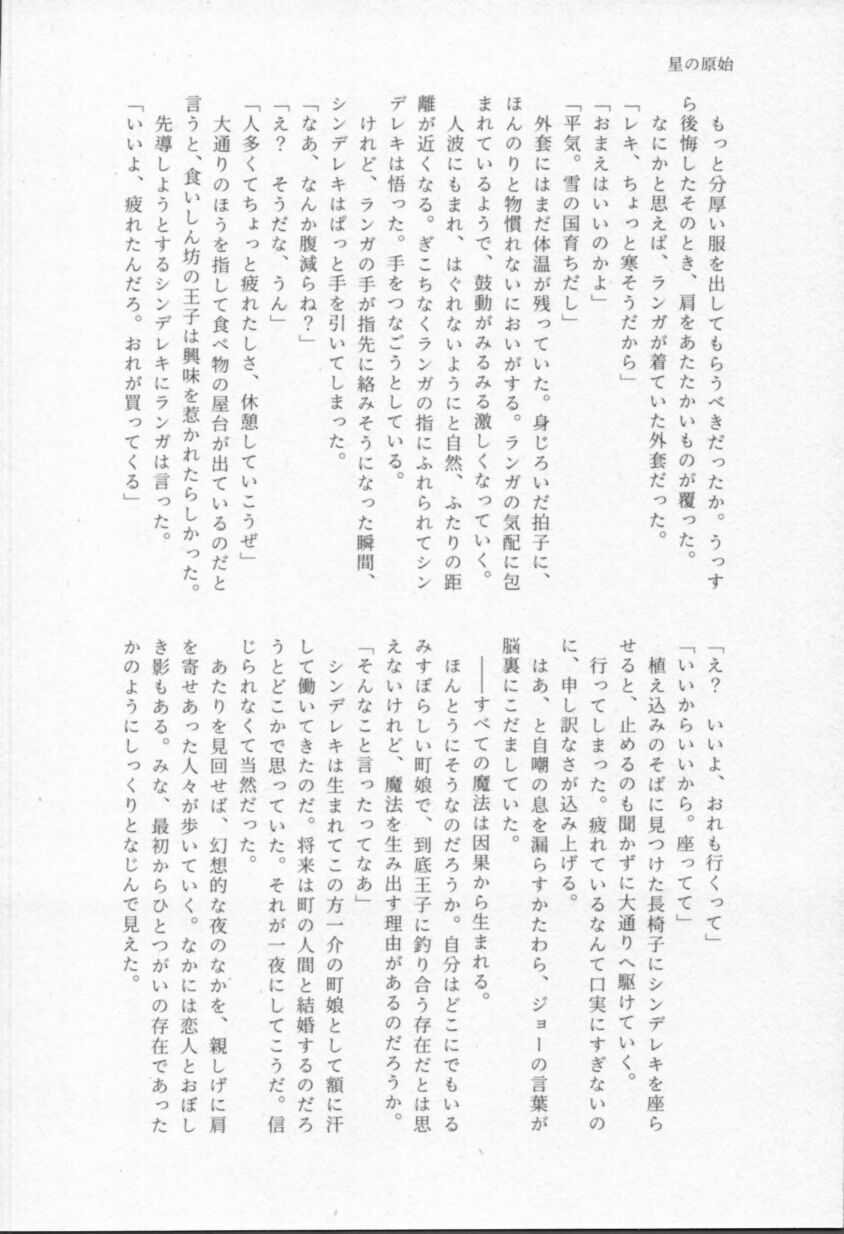 星の原始
　もっと分厚い服を出してもらうべきだったか。うっす
ら後悔したそのとき、肩をあたたかいものが覆った。
　なにかと思えば、ランガが着ていた外套だった。
「レキ、ちょっと寒そうだから」
「おまえはいいのかよ」
「平気。雪の国育ちだし」
　外套にはまだ体温が残っていた。身じろいだ拍子に、
ほんのりと物慣れないにおいがする。ランガの気配に包
まれているようで、鼓動がみるみる激しくなっていく。
　人波にもまれ、はぐれないようにと自然、ふたりの距
離が近くなる。ぎこちなくランガの指にふれられてシン
デレキは悟った。手をつなごうとしている。
　けれど、ランガの手が指先に絡みそうになった瞬間、
シンデレキはぱっと手を引いてしまった。
「なあ、なんか腹減らね？」
「え？　そうだな、うん」
「人多くてちょっと疲れたしさ、休憩していこうぜ」
　大通りのほうを指して食べ物の屋台が出ているのだと
言うと、食いしん坊の王子は興味を惹かれたらしかった。
　先導しようとするシンデレキにランガは言った。
「いいよ、疲れたんだろ。おれが買ってくる」
「え？　いいよ、おれも行くって」
「いいからいいから。座ってて」
　植え込みのそばに見つけた長椅子にシンデレキを座ら
せると、止めるのも聞かずに大通りへ駆けていく。
　行ってしまった。疲れているなんて口実にすぎないの
に、申し訳なさが込み上げる。
　はあ、と自嘲の息を漏らすかたわら、ジョーの言葉が
脳裏にこだましていた。
　――すべての魔法は因果から生まれる。
　ほんとうにそうなのだろうか。自分はどこにでもいる
みすぼらしい町娘で、到底王子に釣り合う存在だとは思
えないけれど、魔法を生み出す理由があるのだろうか。
「そんなこと言ったってなあ」
　シンデレキは生まれてこの方一介の町娘として額に汗
して働いてきたのだ。将来は町の人間と結婚するのだろ
うとどこかで思っていた。それが一夜にしてこうだ。信
じられなくて当然だった。
　あたりを見回せば、幻想的な夜のなかを、親しげに肩
を寄せあった人々が歩いていく。なかには恋人とおぼし
き影もある。みな、最初からひとつがいの存在であった
かのようにしっくりとなじんで見えた。